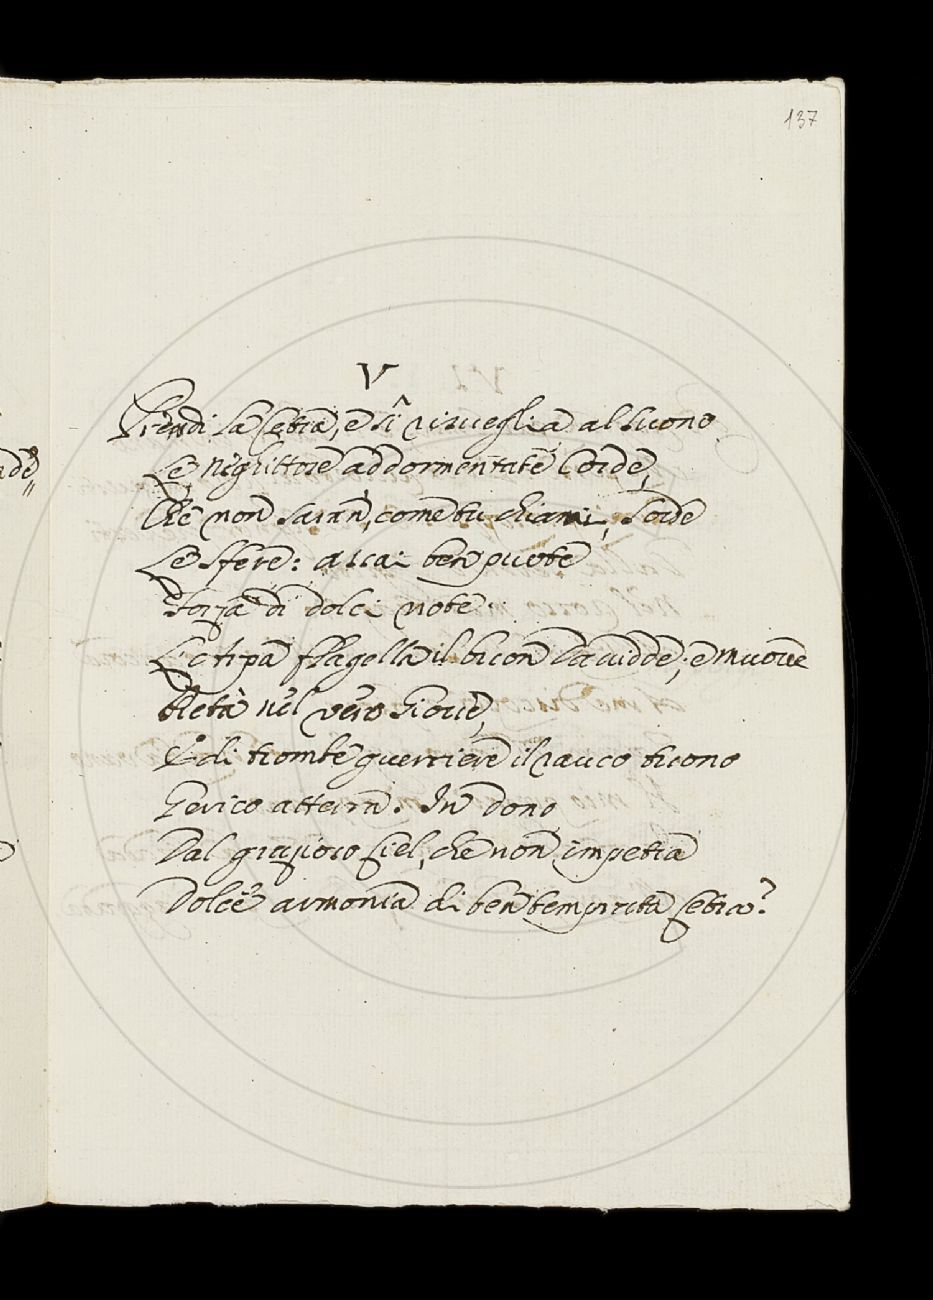 137
V
Prendi la Cetra, e sì risveglia al suono
Le neghittose addormentate Corde,
Che non saran, come tu chiami, sorde
Le sfere: assai ben puote
Forza di dolci note.
Cetra flagella il buon Davidde, e muove
Pietà nel vero Giove,
E di trombe guerriere il rauco suono
Gerico atterra. In dono
Dal grazioso Ciel, che non impetra
Dolce armonia di ben temprata Cetra?